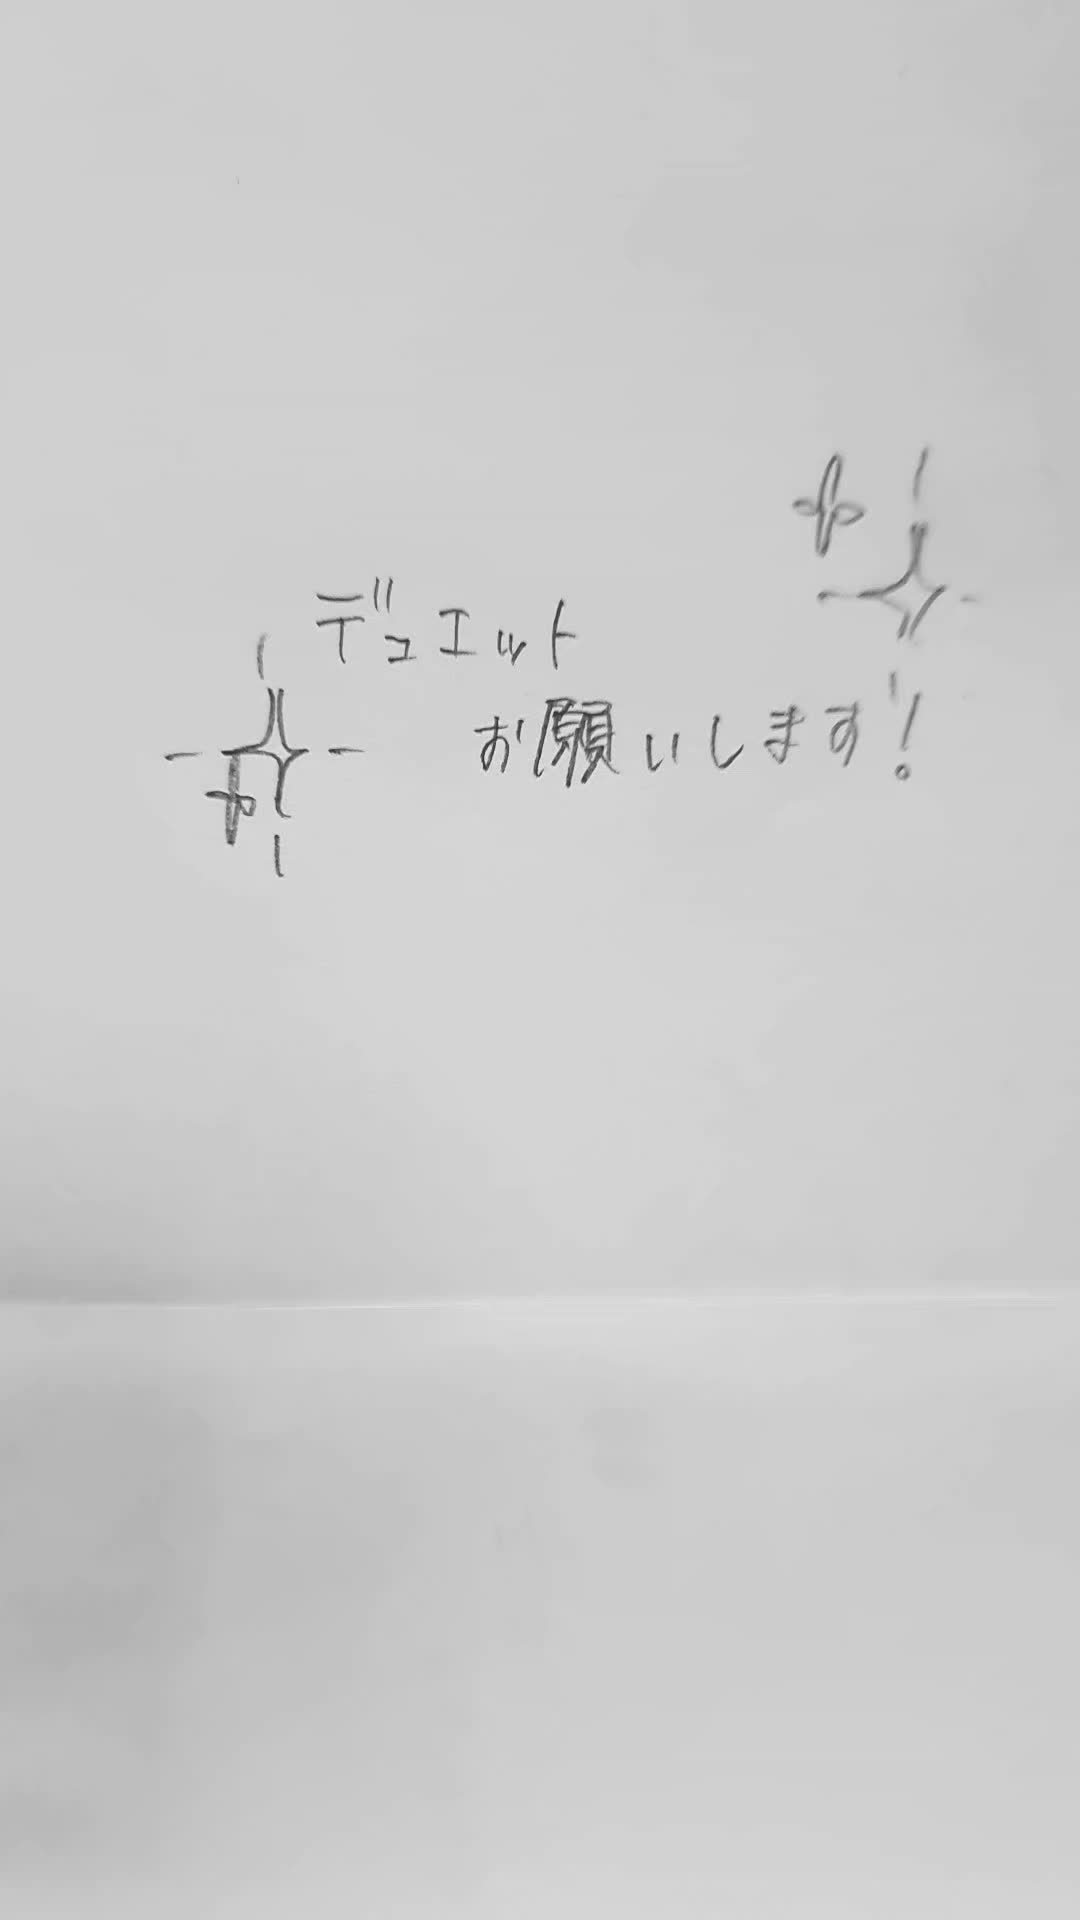 デュエット
お願いします!